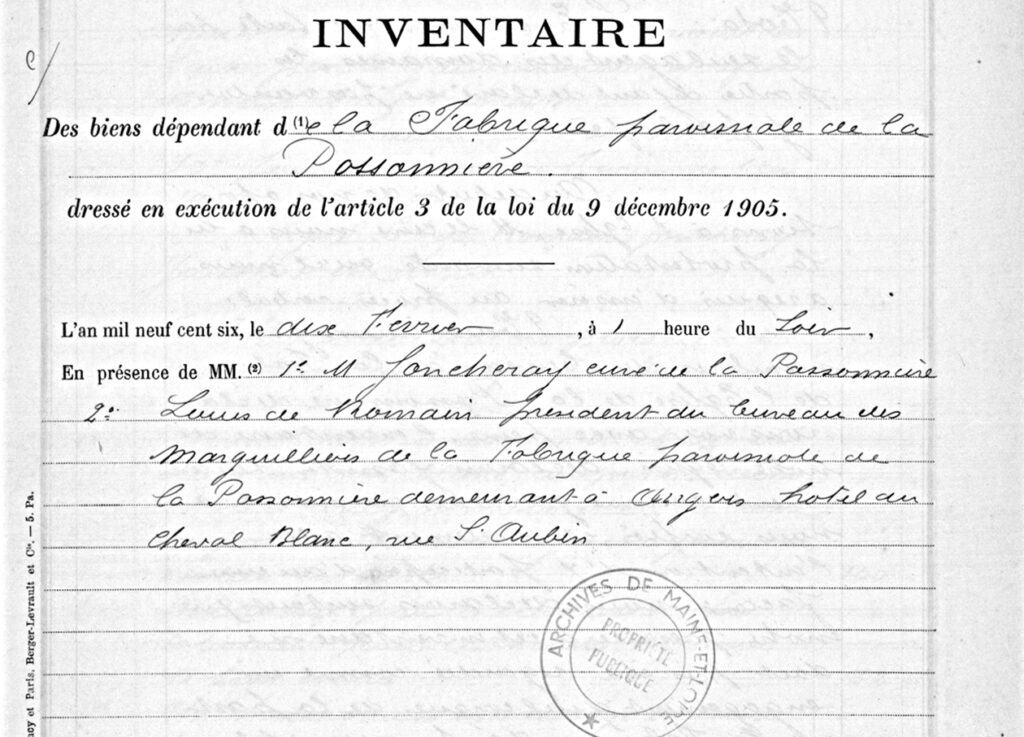 INVENTAIRE
Des biens dépendant d (1) e la Fabrique paroissiale de la
Possonnière.
dressé en exécution de l'article 3 de la loi du 9 décembre 1905.
L'an mil neuf cent six, le dix Fevrier, à 1 heure du Soir,
En présence de MM. (2) 1º M Joncheray curé de la Possonnière
2º Louis de Romain president du bureau des
Marguilliers de la Fabrique paroissiale de
la Possonnière demeurant à Angers hotel du
Cheval Blanc, rue St Aubin
ARCHIVES DE MAINE-ET-LOIRE
PROPRIÉTÉ
PUBLIQUE
ncy et Paris, Berger-Levrault et Cie. — 5. Pa.